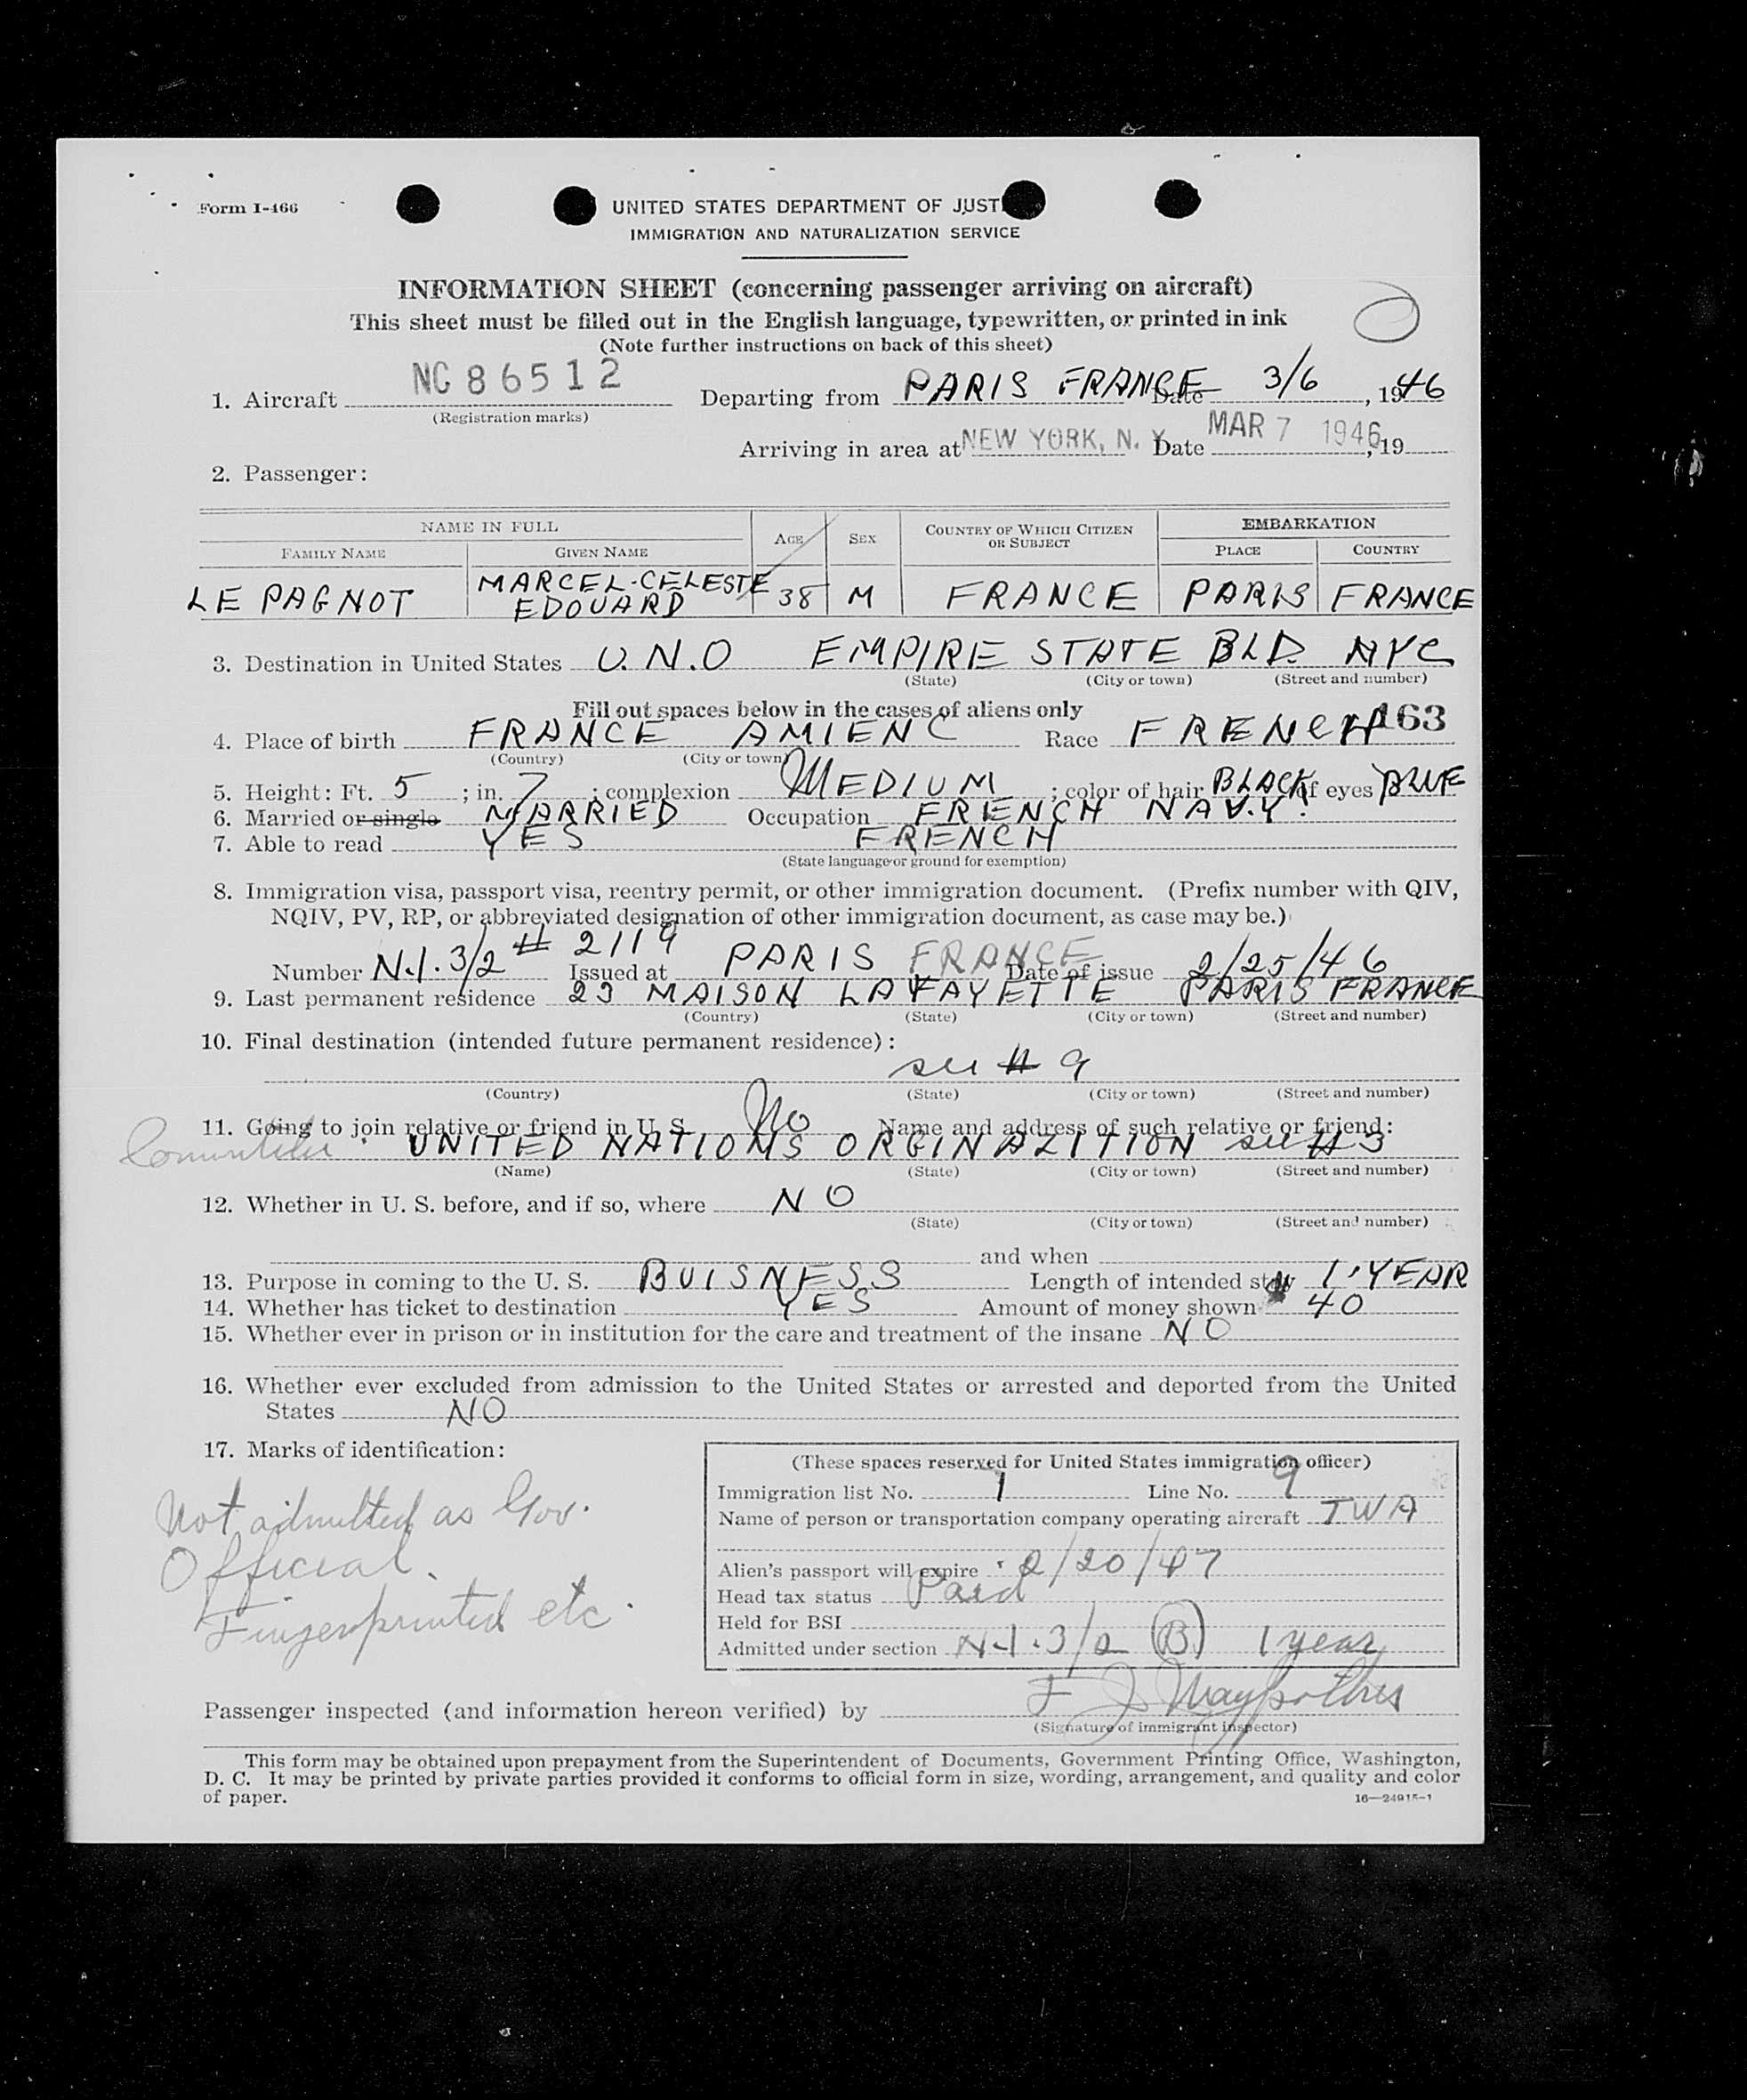 Form I-466
UNITED STATES DEPARTMENT OF JUST
IMMIGRATION AND NATURALIZATION SERVICE
INFORMATION SHEET (concerning passenger arriving on aircraft)
This sheet must be filled out in the English language, typewritten, or printed in ink
(Note further instructions on back of this sheet)
1. Aircraft NC 86512 Departing from PARIS FRANCE Date 3/6, 1946
(Registration marks)
Arriving in area at NEW YORK, N. Y. Date MAR 7 1946, 19
2. Passenger:
NAME IN FULL AGE SEX COUNTRY OF WHICH CITIZEN OR SUBJECT EMBARKATION
FAMILY NAME GIVEN NAME PLACE COUNTRY
LE PAGNOT MARCEL-CELESTE EDOUARD 38 M FRANCE PARIS FRANCE
3. Destination in United States U.N.O EMPIRE STATE BLD. NYC
(State) (City or town) (Street and number)
Fill out spaces below in the cases of aliens only
4. Place of birth FRANCE AMIENC Race FRENCH 163
(Country) (City or town)
5. Height: Ft. 5; in. 7; complexion MEDIUM; color of hair BLACK of eyes BLUE
6. Married or single MARRIED Occupation FRENCH NAVY.
7. Able to read YES FRENCH
(State language or ground for exemption)
8. Immigration visa, passport visa, reentry permit, or other immigration document. (Prefix number with QIV,
NQIV, PV, RP, or abbreviated designation of other immigration document, as case may be.)
Number N.I. 3/2 # 2119 Issued at PARIS FRANCE Date of issue 2/25/46
9. Last permanent residence 23 MAISON LAFAYETTE PARIS FRANCE
(Country) (State) (City or town) (Street and number)
10. Final destination (intended future permanent residence):
see # 9
(Country) (State) (City or town) (Street and number)
11. Going to join relative or friend in U. S. No Name and address of such relative or friend:
UNITED NATIONS ORGINAZITION see #3
(Name) (State) (City or town) (Street and number)
12. Whether in U. S. before, and if so, where NO
(State) (City or town) (Street and number)
and when
13. Purpose in coming to the U. S. BUISNESS Length of intended stay 1 YEAR
14. Whether has ticket to destination YES Amount of money shown 40
15. Whether ever in prison or in institution for the care and treatment of the insane NO
16. Whether ever excluded from admission to the United States or arrested and deported from the United
States NO
17. Marks of identification:
Not admitted as Gov.
Official.
Fingerprinted etc.
(These spaces reserved for United States immigration officer)
Immigration list No. 1 Line No. 9
Name of person or transportation company operating aircraft TWA
Alien's passport will expire 2/20/47
Head tax status Paid
Held for BSI
Admitted under section N-I. 3/2 (B) 1 year
Passenger inspected (and information hereon verified) by F J
(Signature of immigrant inspector)
This form may be obtained upon prepayment from the Superintendent of Documents, Government Printing Office, Washington,
D. C. It may be printed by private parties provided it conforms to official form in size, wording, arrangement, and quality and color
of paper.
16—24915-1